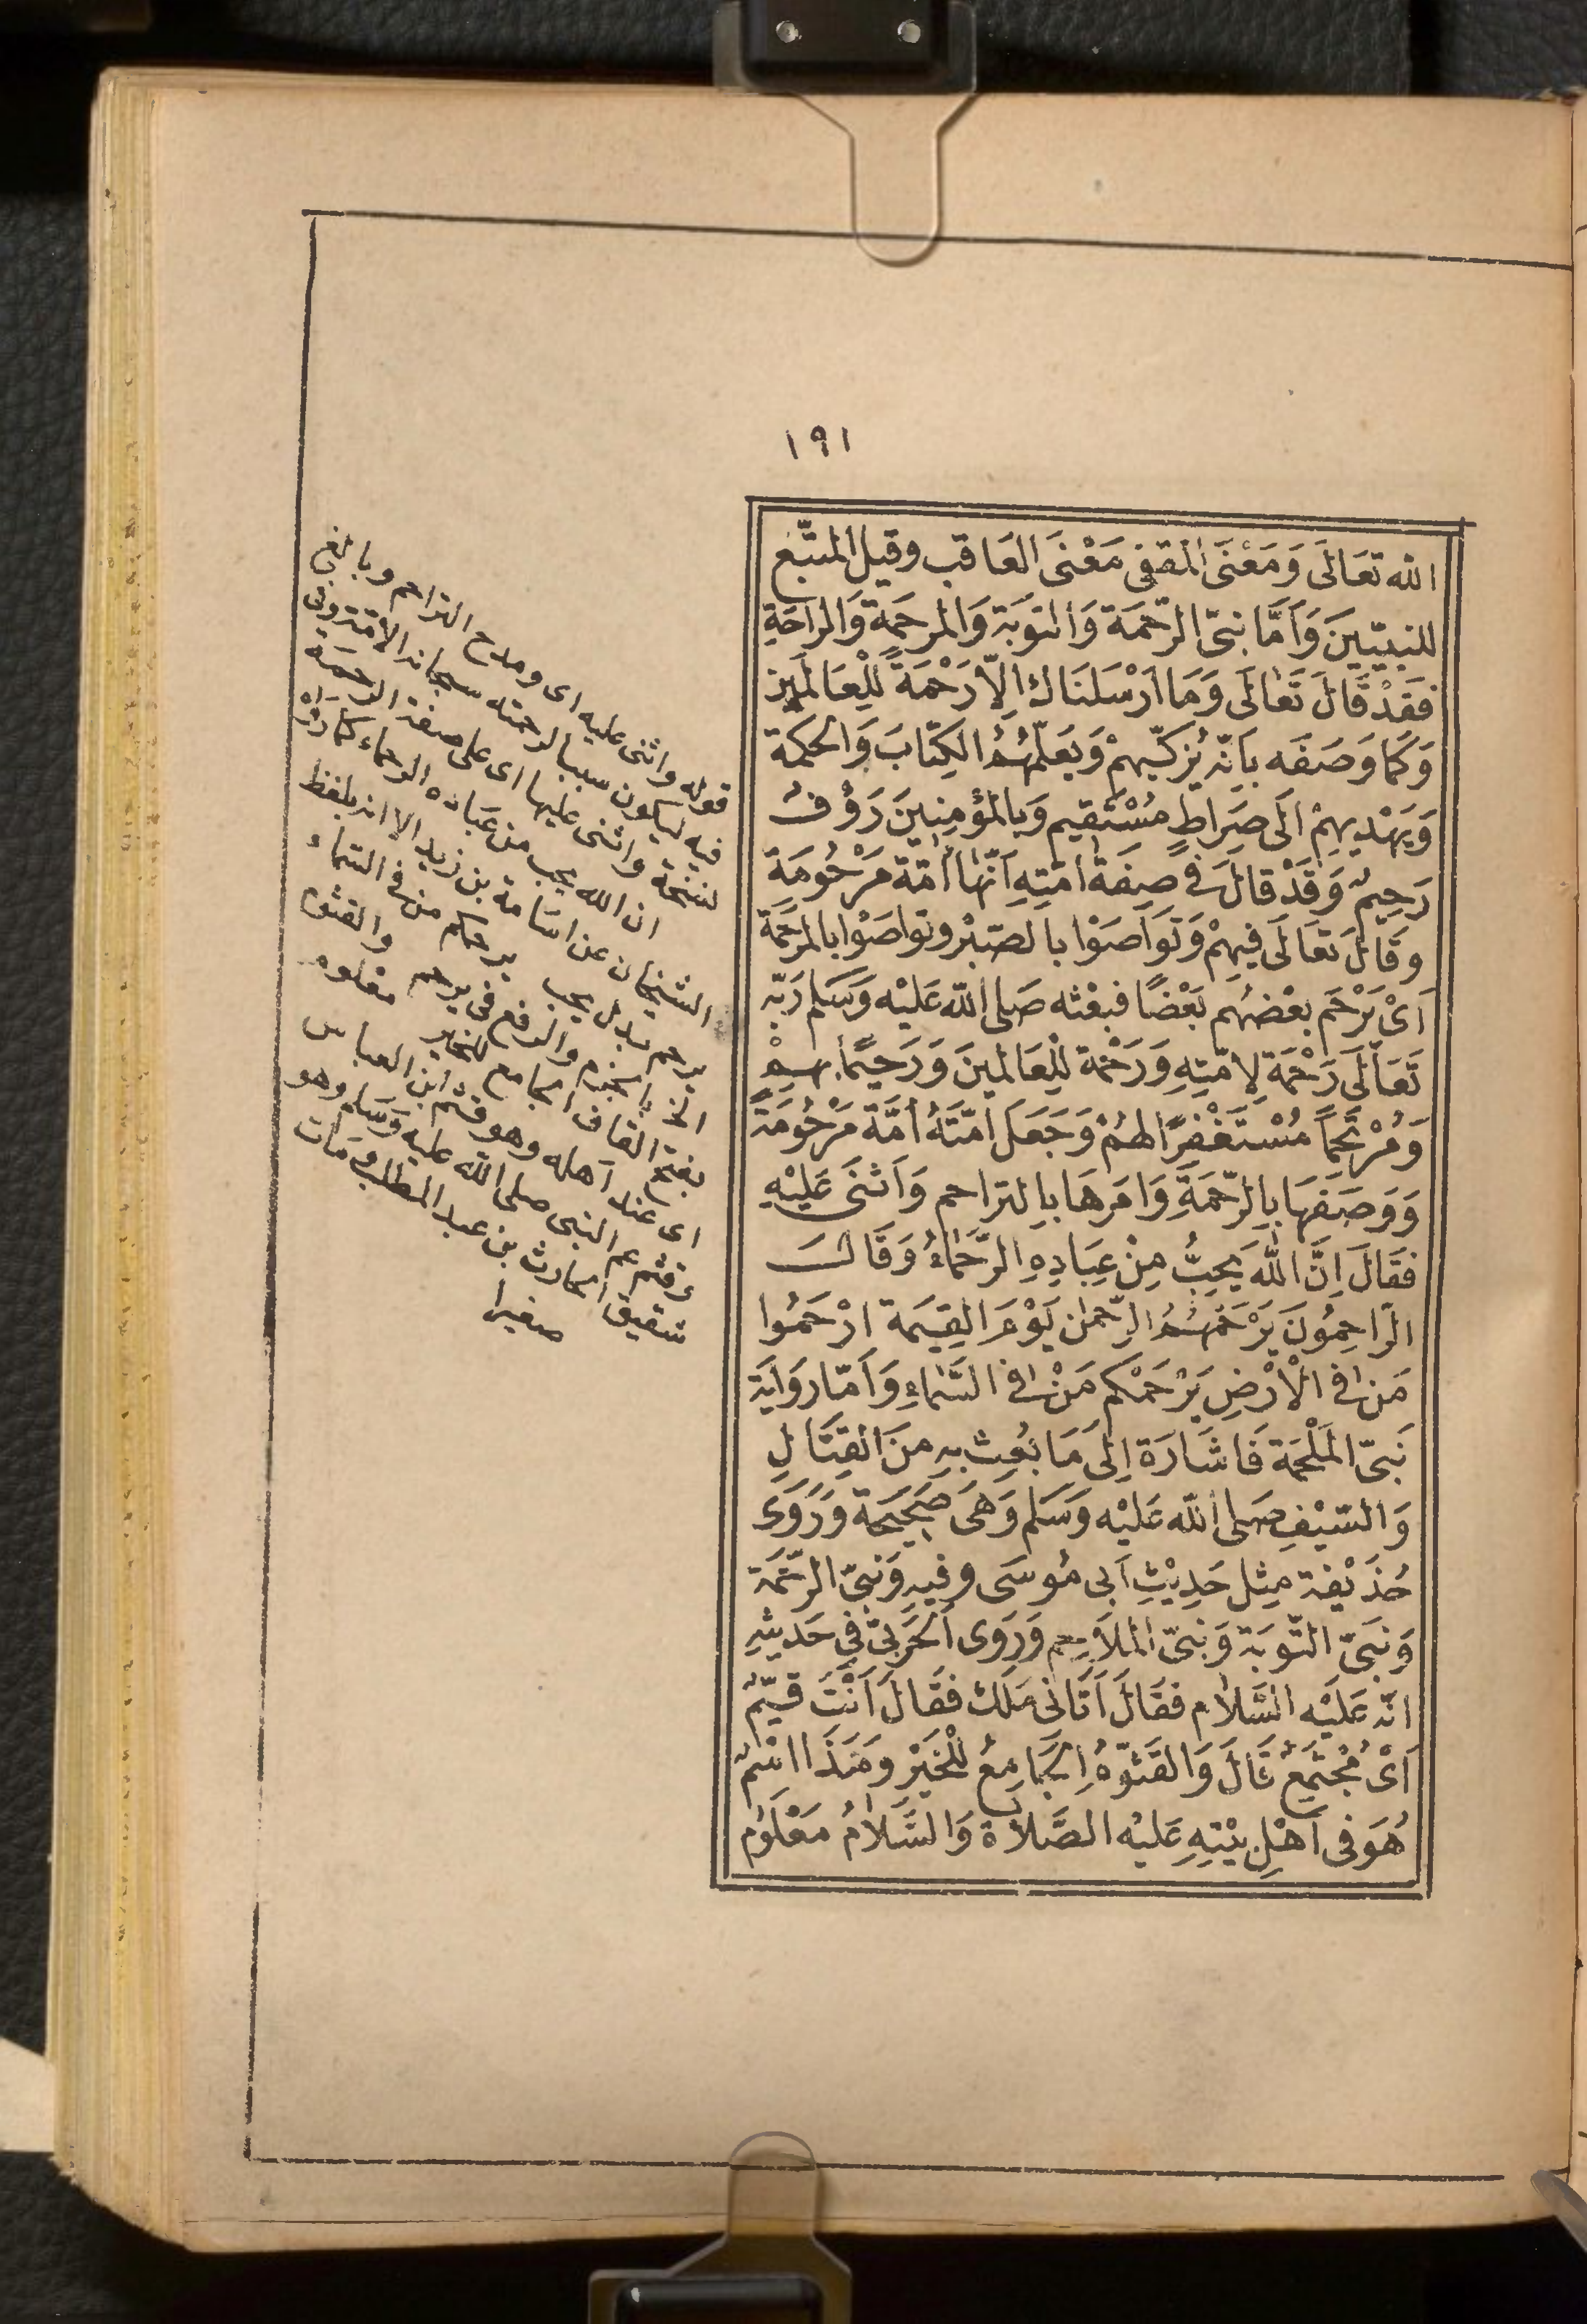 ١٩١
الله تعَالَى وَمَعْنَى المقفى مَعْنَى العَاقب وقيل المتّبع
للنبيّينَ وَأَمَّا نبىّ الرّحْمَة وَالتوْبَة وَالمرحَمَة وَالراحَةِ
فقَدْ قَالَ تَعَالَى وَمَا اَرْسَلنَاك اِلّا رَحْمَةً لِلْعَالَمِين
وَكمَا وَصَفَه بِاَنّه يُزكّيهمْ وَيعَلّمهُمُ الكِتَابَ وَالحكمة
وَيَهْدِيهِمْ الَى صِرَاطٍ مُسْتَقِيم وَبالمؤمِنِينَ رَؤُفٌ
رَحِيمٌ وَقَدْ قالَ فى صِفَة امّتِهِ اَنّهَا اُمّة مَرْحُومَة
وقَالَ تعَالَى فيهِمْ وَتَوَاصَوْا بالصّبْر وتوَاصَوْا بالمرْحَمَة
اَىْ يَرْحَم بعْضُهُم بَعْضًا فبعْثه صَلى الله عَليْه وَسَلم رَبّه
تَعَالَى رَحْمَة لِامّتِهِ وَرَحْمَة لِلْعَالَمِينَ وَرَحِيمًا بِهِمْ
وَمُرْحَمًا مُسْتَغْفِرًا لهُمْ وَجَعَلَ اُمّتَهُ اُمّةً مَرْحُومَةً
وَوَصَفهَا بِالرّحْمَةِ وَامَرهَا بِالتراحم وَاَثنَى عَلِيْهِ
فقَالَ اِنَّ اللّٰه يُحِبُّ مِنْ عِبَادِهِ الرُّحَمَاءُ وَقَالَ
الرّاحِمُونَ يَرْحَمهُمُ الرّحمٰن يَوْمَ القِيمَة ارْحَمُوا
مَن فى الْاَرْضِ يَرْحَمْكم مَنْ فى السَّمَاءِ وَاَمّا رِوَايَة
نَبىّ المَلْحَمَة فَاشَارَة اِلى مَا بُعِث بِهِ مِنَ القِتَالِ
وَالسّيْفِ صَلى اللّٰه عَليْه وَسَلم وَهىَ صَحِيحَة وَرَوَى
حُذَيْفة مِثل حَدِيْثِ اَبى مُوسَى وفيهِ وَنبىّ الرّحْمَة
وَنبَىّ التّوبَة وَنبىّ المَلاحِم وَرَوَى الحَرْبىّ فى حَديثِهِ
انّه عَلَيْه السَّلَام فقَالَ اَتَانى مَلَك فقَالَ اَنْتَ قيّمٌ
اَىْ مُجْتَمِعٌ قَالَ وَالقَثوُمُ الجَامِعُ للْخَيْر وَهَذَا اسْمٌ
هُوَ فى اَهْلِ بيْتِهِ عَليْه الصَّلَاة وَالسَّلَامُ مَعْلُوم
قوله واثنى عليه اى ومدح التراحم وبالغ
فيه ليكون سببا لرحمته سبحانه الامّة وفى
نسخة واثنى عليها اى على صفة الرحمة
ان الله يحب من عباده الرحماء كما رواه
الشيخان عن اسامة بن زيد الا انه بلفظ
يرحم بدل يحب يرحمكم من فى السّماء
الخ بالجزم والرفع فى يرحم والقثوم
بفتح القاف الجامع للخير معلوم
اى عند اهله وهو قثم ابن العباس
وقثم عم النبى صلى الله عليه وسلم وهو
شقيق الحارث بن عبد المطلب ومات
صغيرا